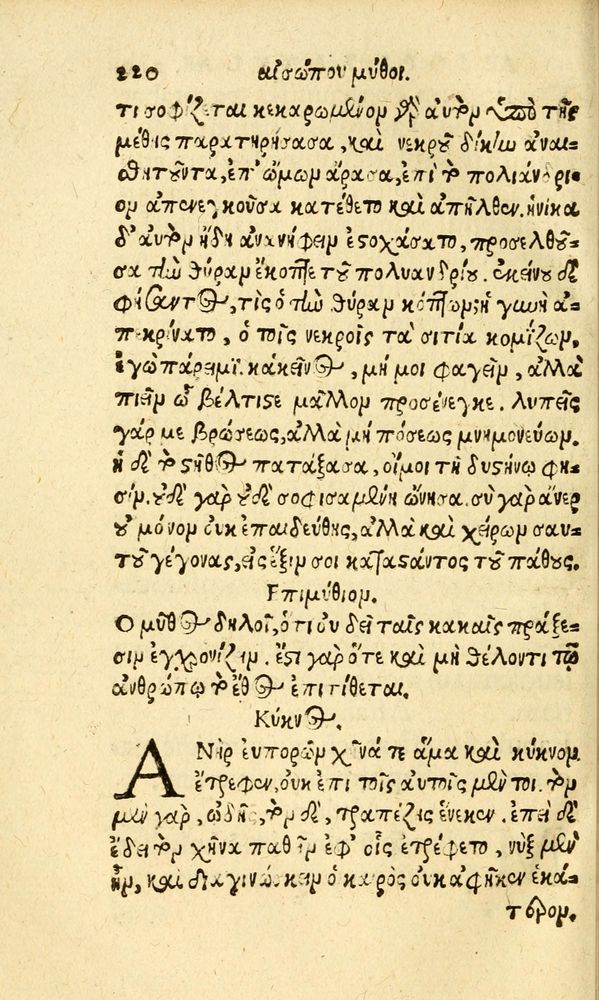 220 αἰσώπου μῦθοι.
τι σοφίζεται κεκαρωμένον γὸ αὐτὸν ὑπὸ τῆς
μέθης παρατηρήσασα, καὶ νεκροῦ δίκην ἀναι-
σθητοῦντα, ἐπ' ὤμων ἄρασα, ἐπὶ τὸ πολιάνδρι-
ον ἀπενεγκοῦσα κατέθετο καὶ ἀπῆλθεν. ἡνίκα
δ' αὐτὸν ἤδη ἀνανήφειν ἐστοχάσατο, προσελθοῦ-
σα τὴν θύραν ἔκοπτε τοῦ πολυανδρίου. ἐκείνου δὲ
φήσαντος, τίς ὁ τὴν θύραν κόπτων; ἡ γυνὴ ἀ-
πεκρίνατο, ὁ τοῖς νεκροῖς τὰ σιτία κομίζων,
ἐγὼ πάρειμι. κἀκεῖνος, μή μοι φαγεῖν, ἀλλὰ
πιεῖν ὦ βέλτιστε μᾶλλον προσένεγκε. λυπεῖς
γάρ με βρώσεως, ἀλλὰ μὴ πόσεως μνημονεύων.
ἡ δὲ τὸ στῆθος πατάξασα, οἴμοι τῇ δυστήνῳ φη-
σίν. οὐδὲ γὰρ οὐδὲ σοφισαμένη ὤνησα. σὺ γὰρ ἄνερ
οὐ μόνον οὐκ ἐπαιδεύθης, ἀλλὰ καὶ χείρων σαυ-
τοῦ γέγονας, εἰς ἕξιν σοι καταστάντος τοῦ πάθους.
Επιμύθιον.
Ο μῦθος δηλοῖ, ὅτι οὐ δεῖ ταῖς κακαῖς πράξε-
σιν ἐγχρονίζειν. ἔστι γὰρ ὅτε καὶ μὴ θέλοντι τῷ
ἀνθρώπῳ τὸ ἔθος ἐπιτίθεται.
Κύκνος.
ΑΝὴρ εὐπορῶν χῆνά τε ἅμα καὶ κύκνον
ἔτρεφεν, οὐκ ἐπὶ τοῖς αὐτοῖς μέν τοι. τὸν
μὲν γὰρ, ᾠδῆς, τὸν δὲ, τραπέζης ἕνεκεν. ἐπεὶ δὲ
ἔδει τὸν χῆνα παθεῖν ἐφ' οἷς ἐτρέφετο, νὺξ μὲν
ἦν, καὶ διαγινώσκειν ὁ καιρὸς οὐκ ἀφῆκεν ἑκά-
τερον.